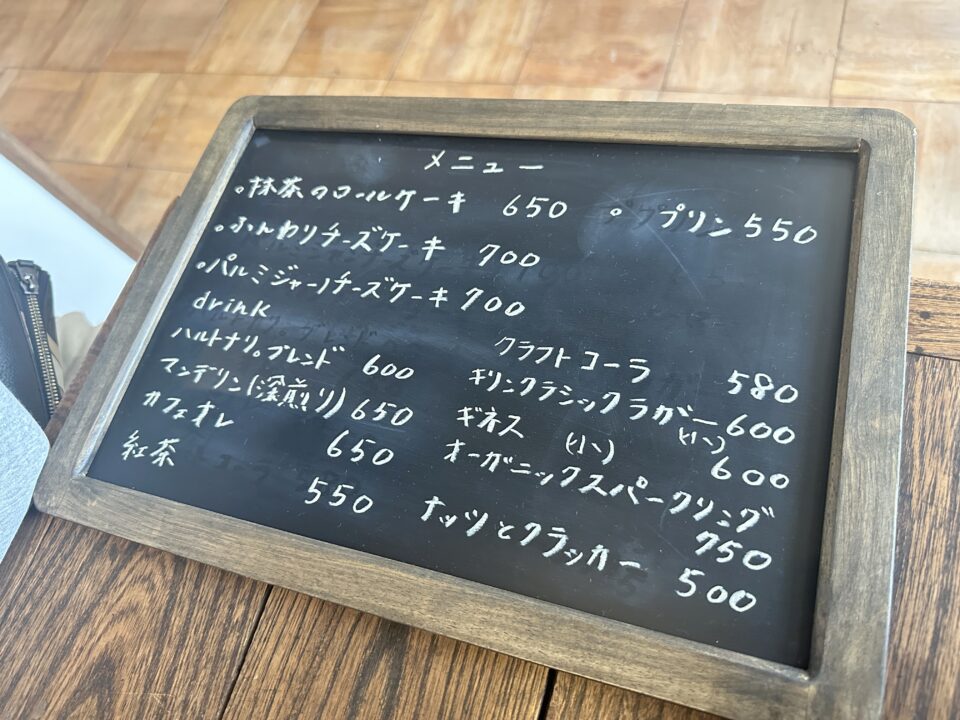 メニュー
。抹茶のロールケーキ 650 。プリン 550
。ふんわりチーズケーキ 700
。パルミジャーノチーズケーキ 700
drink
ハルトナリ。ブレンド 600
マンデリン(深煎り) 650
カフェオレ 650
紅茶 550
クラフトコーラ 580
キリンクラシックラガー(小) 600
ギネス (小) 600
オーガニックスパークリング
750
ナッツとクラッカー 500